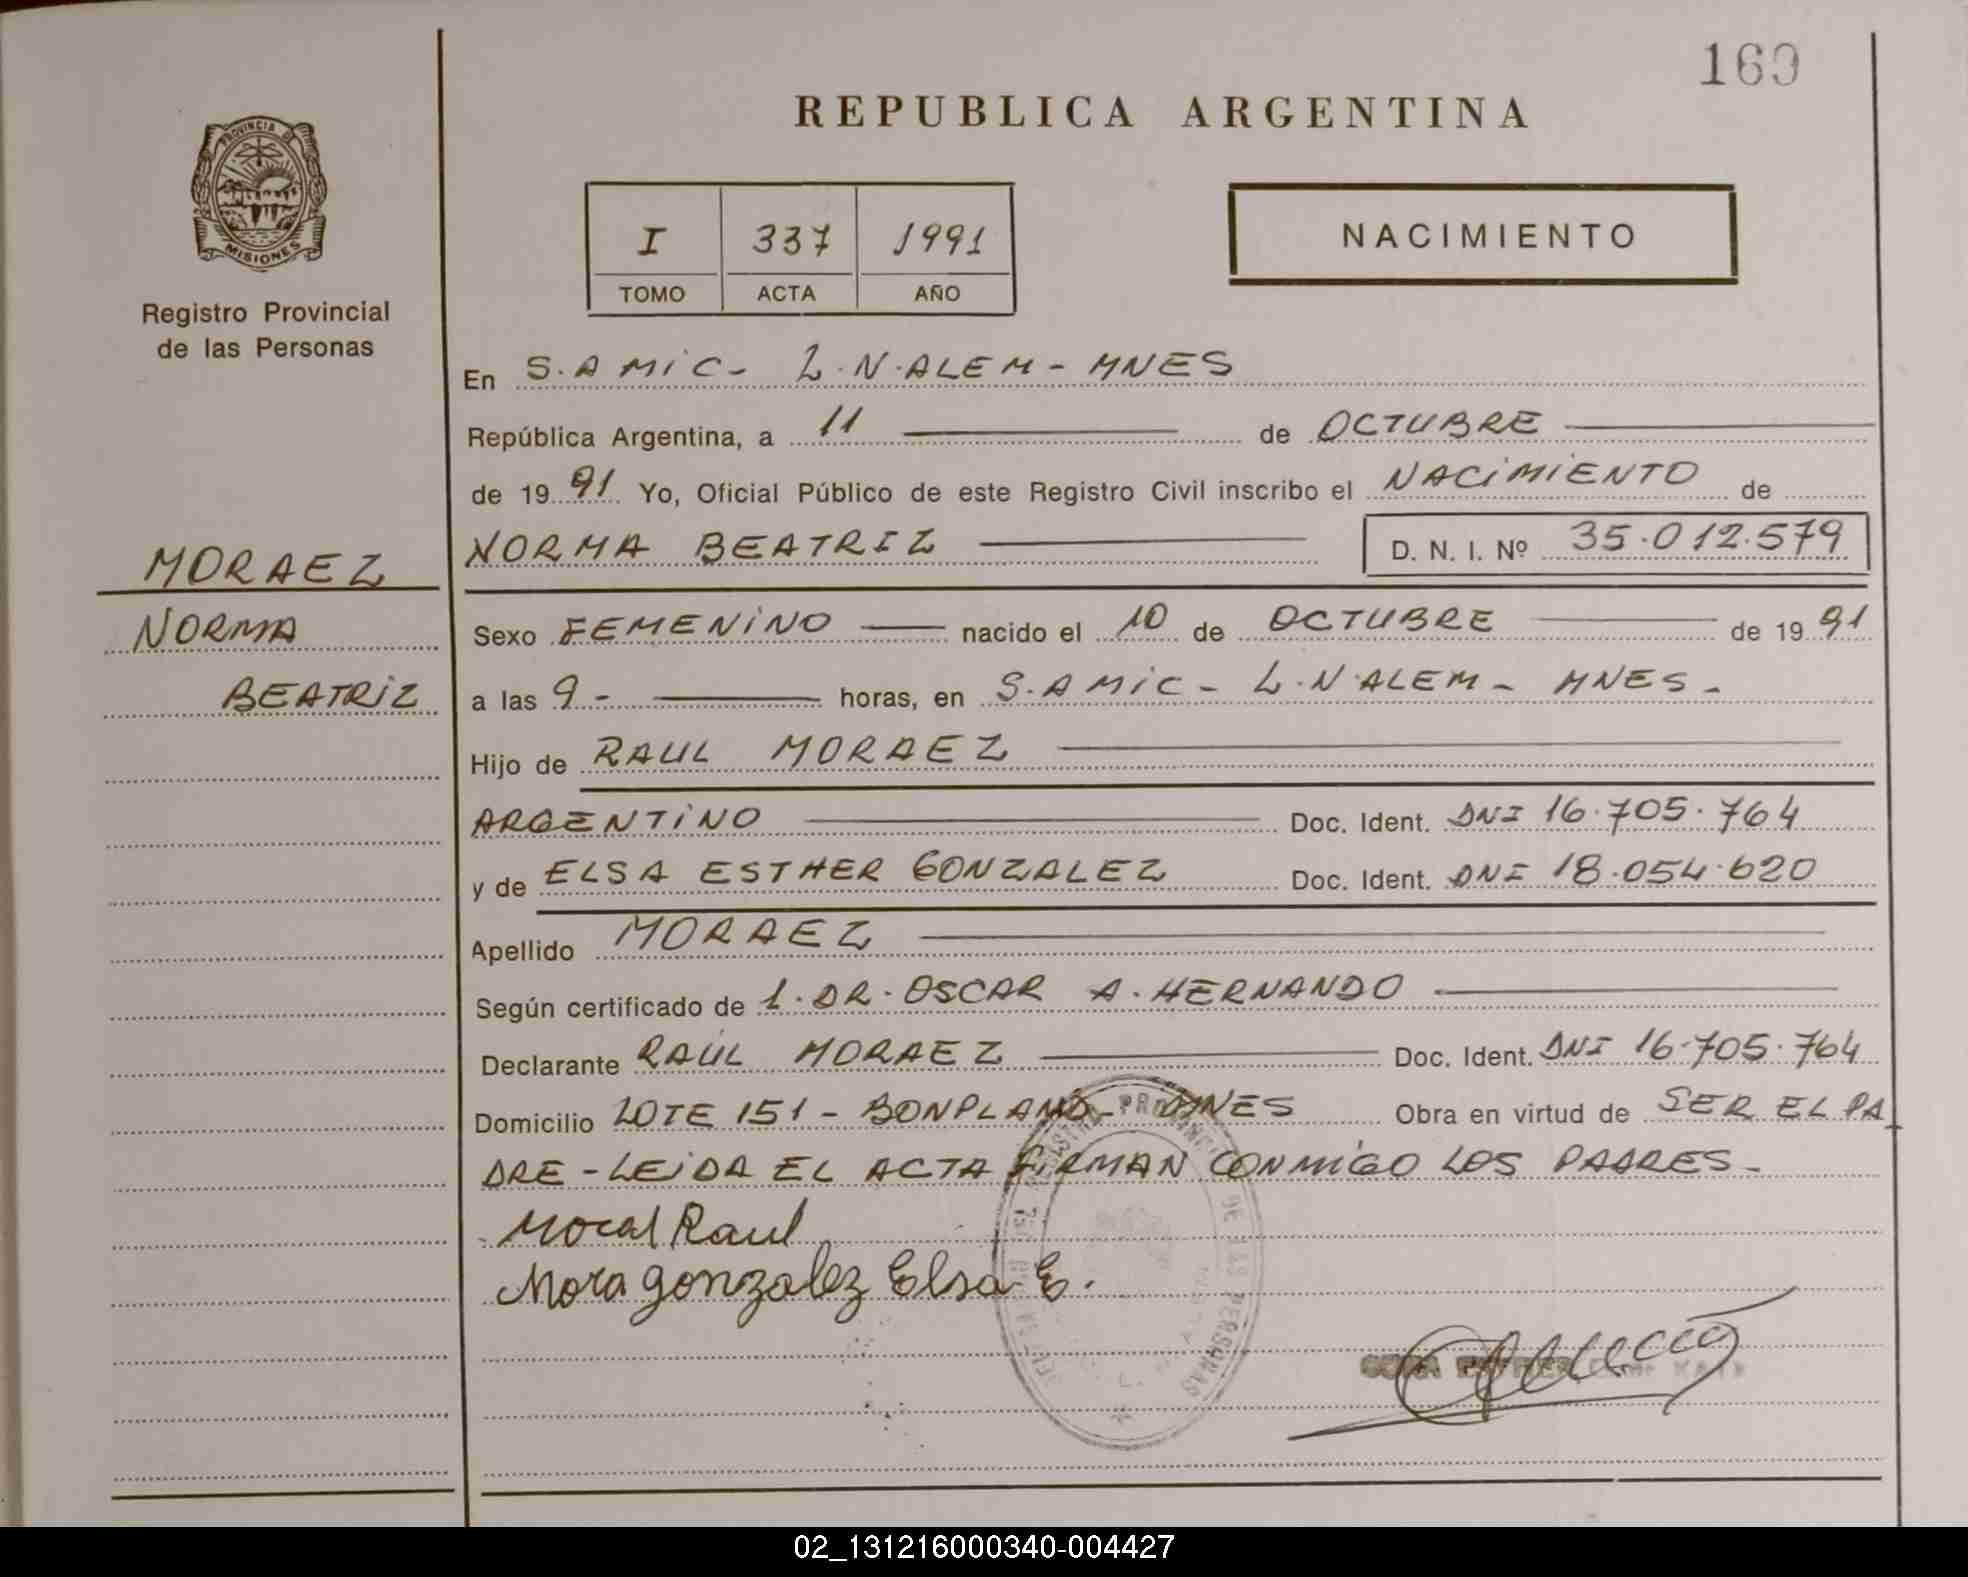 169
REPUBLICA ARGENTINA
PROVINCIA DE
MISIONES
Registro Provincial
de las Personas
I 337 1991
TOMO ACTA AÑO
NACIMIENTO
En S.AMIC- L.N.ALEM - MNES
República Argentina, a 11 de OCTUBRE
de 1991 Yo, Oficial Público de este Registro Civil inscribo el NACIMIENTO de
NORMA BEATRIZ D. N. I. Nº 35.012.579
MORAEZ
NORMA
BEATRIZ
Sexo FEMENINO nacido el 10 de OCTUBRE de 1991
a las 9- horas, en S.AMIC - L.N.ALEM - MNES -
Hijo de RAUL MORAEZ
ARGENTINO Doc. Ident. DNI 16.705.764
y de ELSA ESTHER GONZALEZ Doc. Ident. DNI 18.054.620
Apellido MORAEZ
Según certificado de 1. DR. OSCAR A. HERNANDO
Declarante RAÚL MORAEZ Doc. Ident. DNI 16.705.764
Domicilio LOTE 151 - BONPLAND - MNES Obra en virtud de SER EL PA
DRE - LEIDA EL ACTA FIRMAN CONMIGO LOS PADRES -
Raul
Mora gonzalez Elsa E.
REGISTRO PROVINCIAL DE LAS PERSONAS
02_131216000340-004427